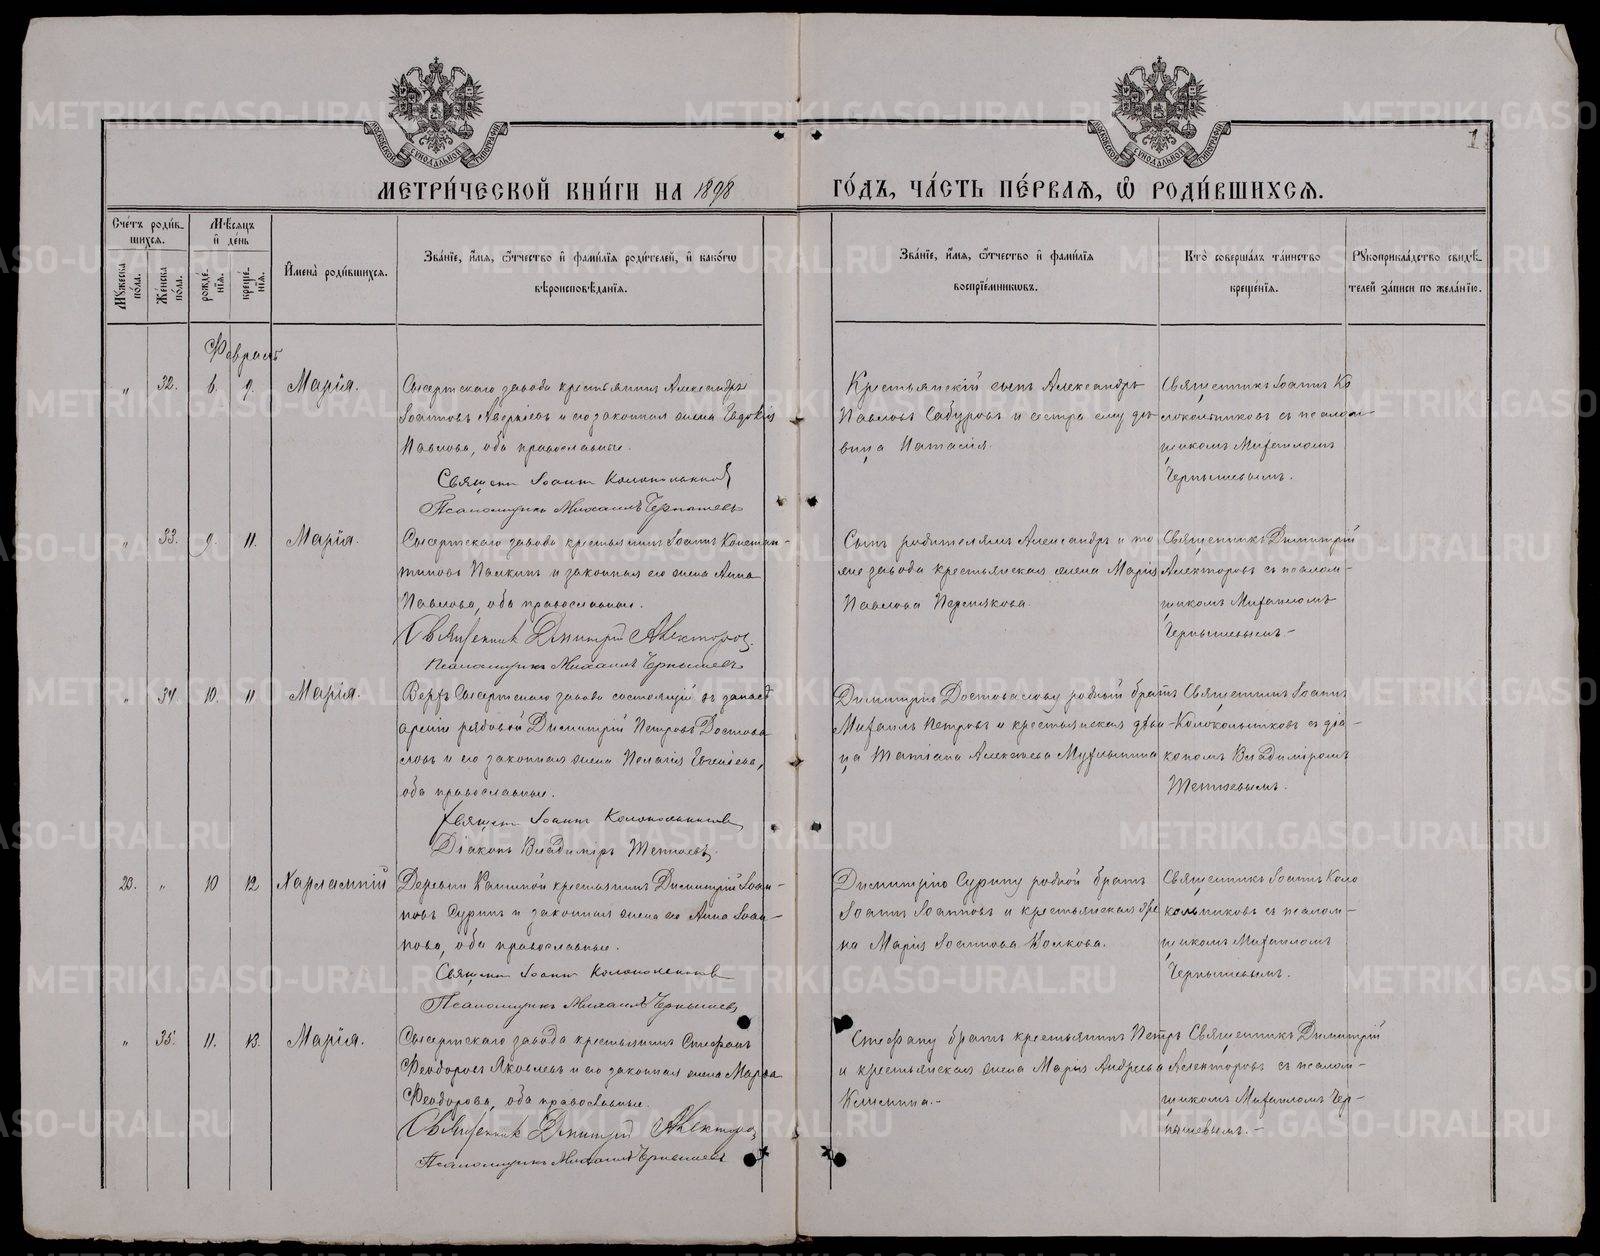 МЕТРИ́ЧЕСКОЙ КНИ́ГИ НА 1898 ГО́ДЪ, ЧА́СТЬ ПЕ́РВАѦ, Ѿ РОДИ́ВШИХСѦ.
Сче́тъ роди́в-
шихсѧ.
Мѣ́сѧцъ
и҆ де́нь
Мꙋ́жеска
по́ла.
Же́нска
по́ла.
рожде́-
нїѧ.
креще́-
нїѧ.
И҆мена̀ роди́вшихсѧ.
Зва́нїе, и҆́мѧ, ѻ҆́тчество и҆ фами́лїѧ роди́телей, и҆ како́гѡ
вѣроисповѣ́данїѧ.
Зва́нїе, и҆́мѧ, ѻ҆́тчество и҆ фами́лїѧ
воспрїе́мникѡвъ.
Кто̀ соверша́лъ та́инство
креще́нїѧ.
Рꙋкоприкла́дство свидѣ́-
телей за́писи по жела́нїю.
Февраль
„ 32. 6. 9. Марія.
Сысертскаго завода крестьянинъ Александръ
Іоанновъ Аверкіевъ и его законная жена Евдокія
Павлова, оба православные.
Священ. Іоаннъ Колокольниковъ
Псаломщикъ Михаилъ Чернышевъ
Крестьянскій сынъ Александръ
Павловъ Сабуровъ и сестра ему дѣ-
вица Наталія.
Священникъ Іоаннъ Ко
локольниковъ съ псалом-
щикомъ Михаиломъ
Чернышевымъ.
„ 33. 9. 11. Марія.
Сысертскаго завода крестьянинъ Іоаннъ Констан-
тиновъ Палкинъ и законная его жена Анна
Павлова, оба православные.
Священникъ Димитрій Алекторовъ
Псаломщикъ Михаилъ Чернышевъ
Сынъ родителямъ Александръ и то
же завода крестьянская жена Марія
Павлова Пермякова.
Священникъ Димитрій
Алекторовъ съ псалом-
щикомъ Михаиломъ
Чернышевымъ.-
„ 34. 10. 11 Марія.
Верхъ Сысертскаго завода состоящій въ запасѣ
арміи рядовой Димитрій Петровъ Достова-
ловъ и его законная жена Пелагія Евгеніева,
оба православные.
Священ. Іоаннъ Колокольниковъ
Діаконъ Владиміръ
Димитрію Достовалову родный братъ
Михаилъ Петровъ и крестьянская дѣви-
ца Татіана Алексѣева Мухлынина
Священникъ Іоаннъ
Колокольниковъ съ діа-
кономъ Владиміромъ
20. „ 10 12 Харлампій
Деревни Кашиной крестьянинъ Димитрій Іоан-
новъ Суринъ и законная жена его Анна Іоан-
нова, оба православные.
Священ. Іоаннъ Колокольниковъ
Псаломщикъ Михаилъ Чернышевъ
Димитрію Сурину родной братъ
Іоаннъ Іоанновъ и крестьянская же
на Марія Іоаннова Волкова.
Священникъ Іоаннъ Коло
кольниковъ съ псалом-
щикомъ Михаиломъ
Чернышевымъ.
„ 35. 11. 13. Марія.
Сысертскаго завода крестьянинъ Стефанъ
Феодоровъ Яковлевъ и его законная жена Марѳа
Феодорова, оба православные.
Священникъ Димитрій Алекторовъ
Псаломщикъ Михаилъ Чернышевъ
Стефану братъ крестьянинъ Петръ
и крестьянская жена Марія Андреева
Священникъ Димитрій
Алекторовъ съ псалом-
щикомъ Михаиломъ Чер-
нышевымъ.-
METRIKI.GASO-URAL.RU